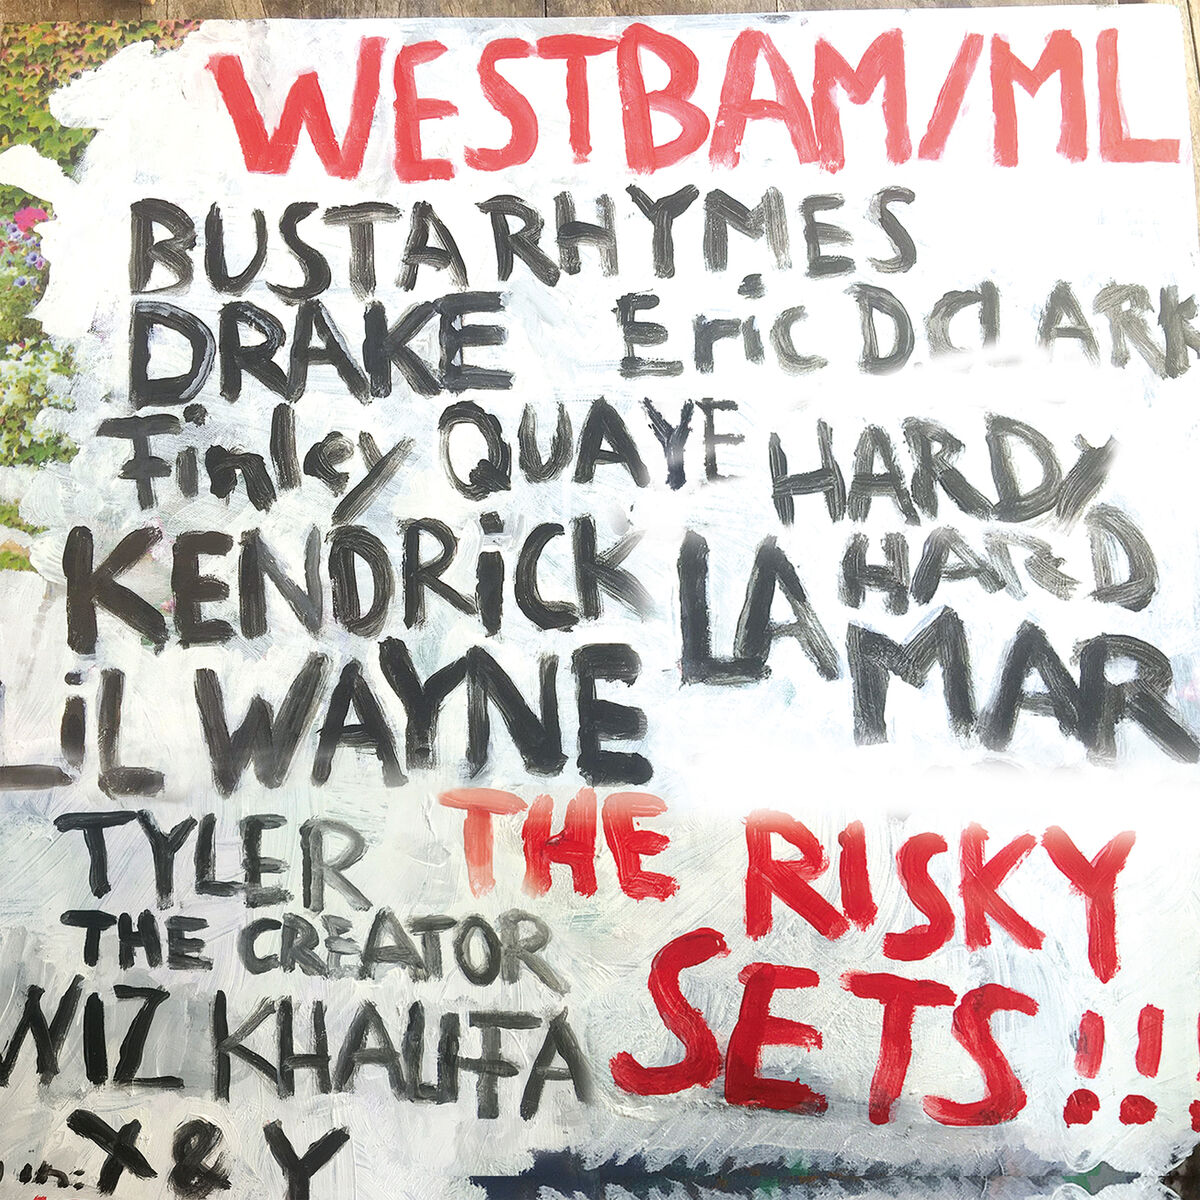 WESTBAM/ML
BUSTA RHYMES
DRAKE Eric D.CLARK
Finley QUAYE HARDY
HARD
KENDRiCK LAMAR
LiL WAYNE
TYLER THE RISKY
THE CREATOR SETS!!!
WIZ KHALIFA
X & Y